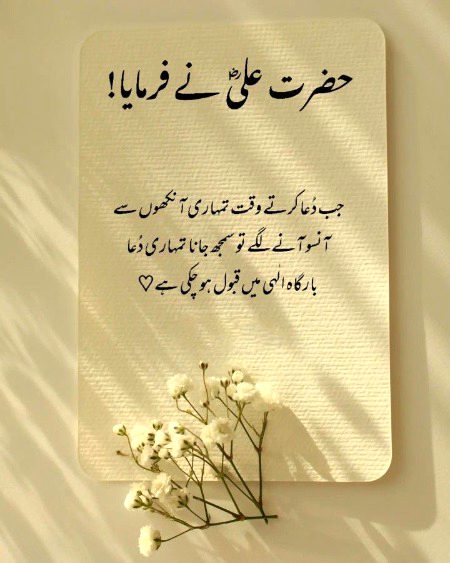 حضرت علیؓ نے فرمایا!
جب دُعا کرتے وقت تمہاری آنکھوں سے
آنسو آنے لگے تو سمجھ جانا تمہاری دُعا
بارگاہ الٰہی میں قبول ہو چکی ہے♡